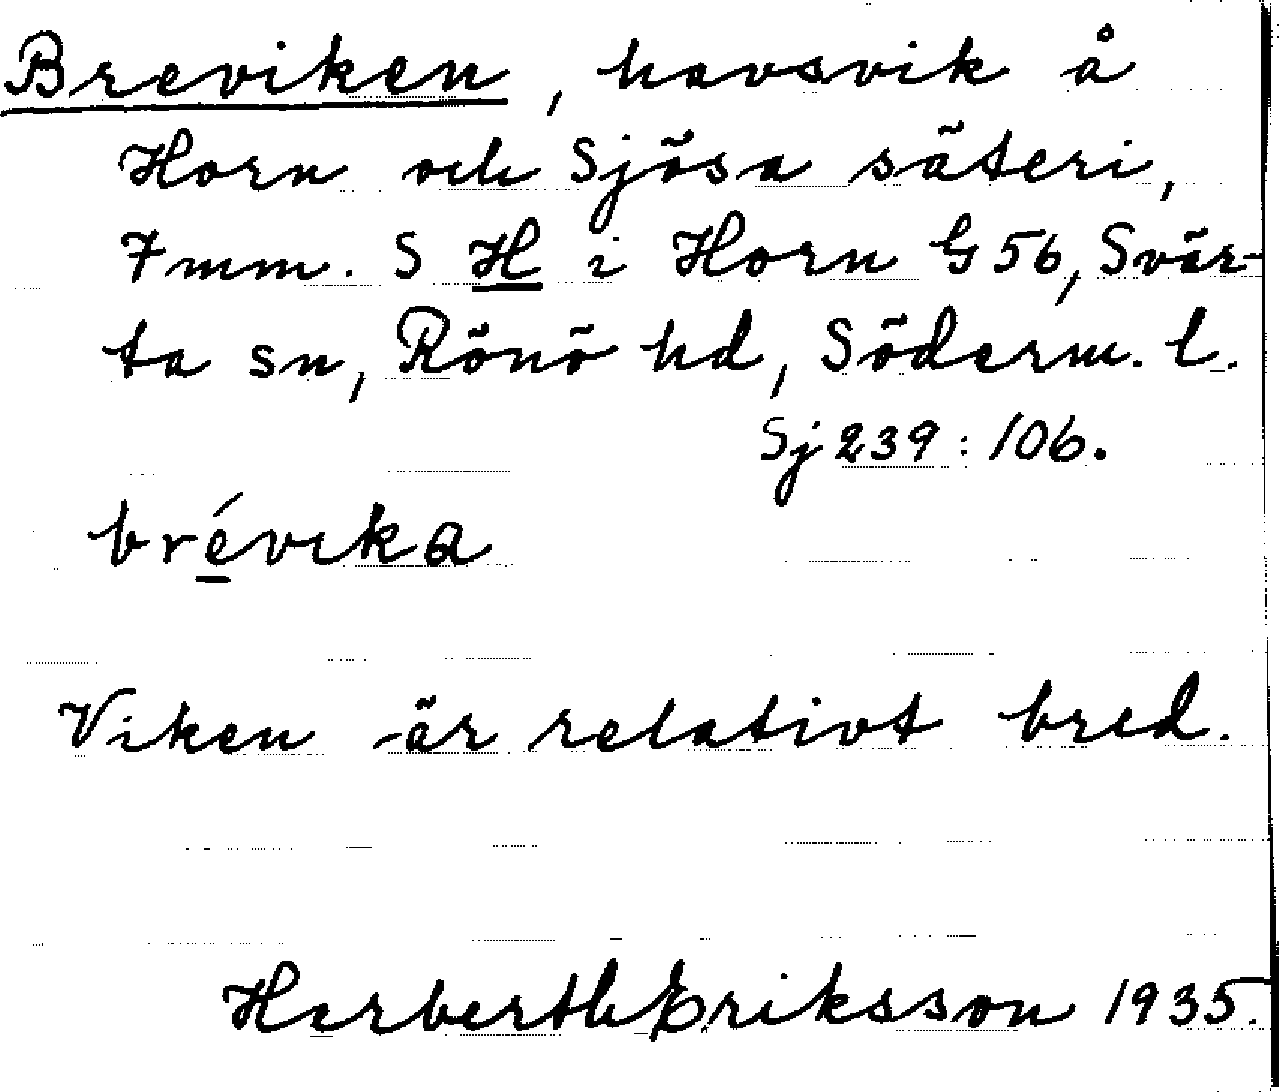 Breviken, havsvik å
Horn och Sjösa säteri,
7 mm. S H i Horn G 56, Svär-
ta sn, Rönö hd, Söderm. l.
Sj 239 : 106.
brévika
Viken är relativt bred.
Herberth Eriksson 1935.